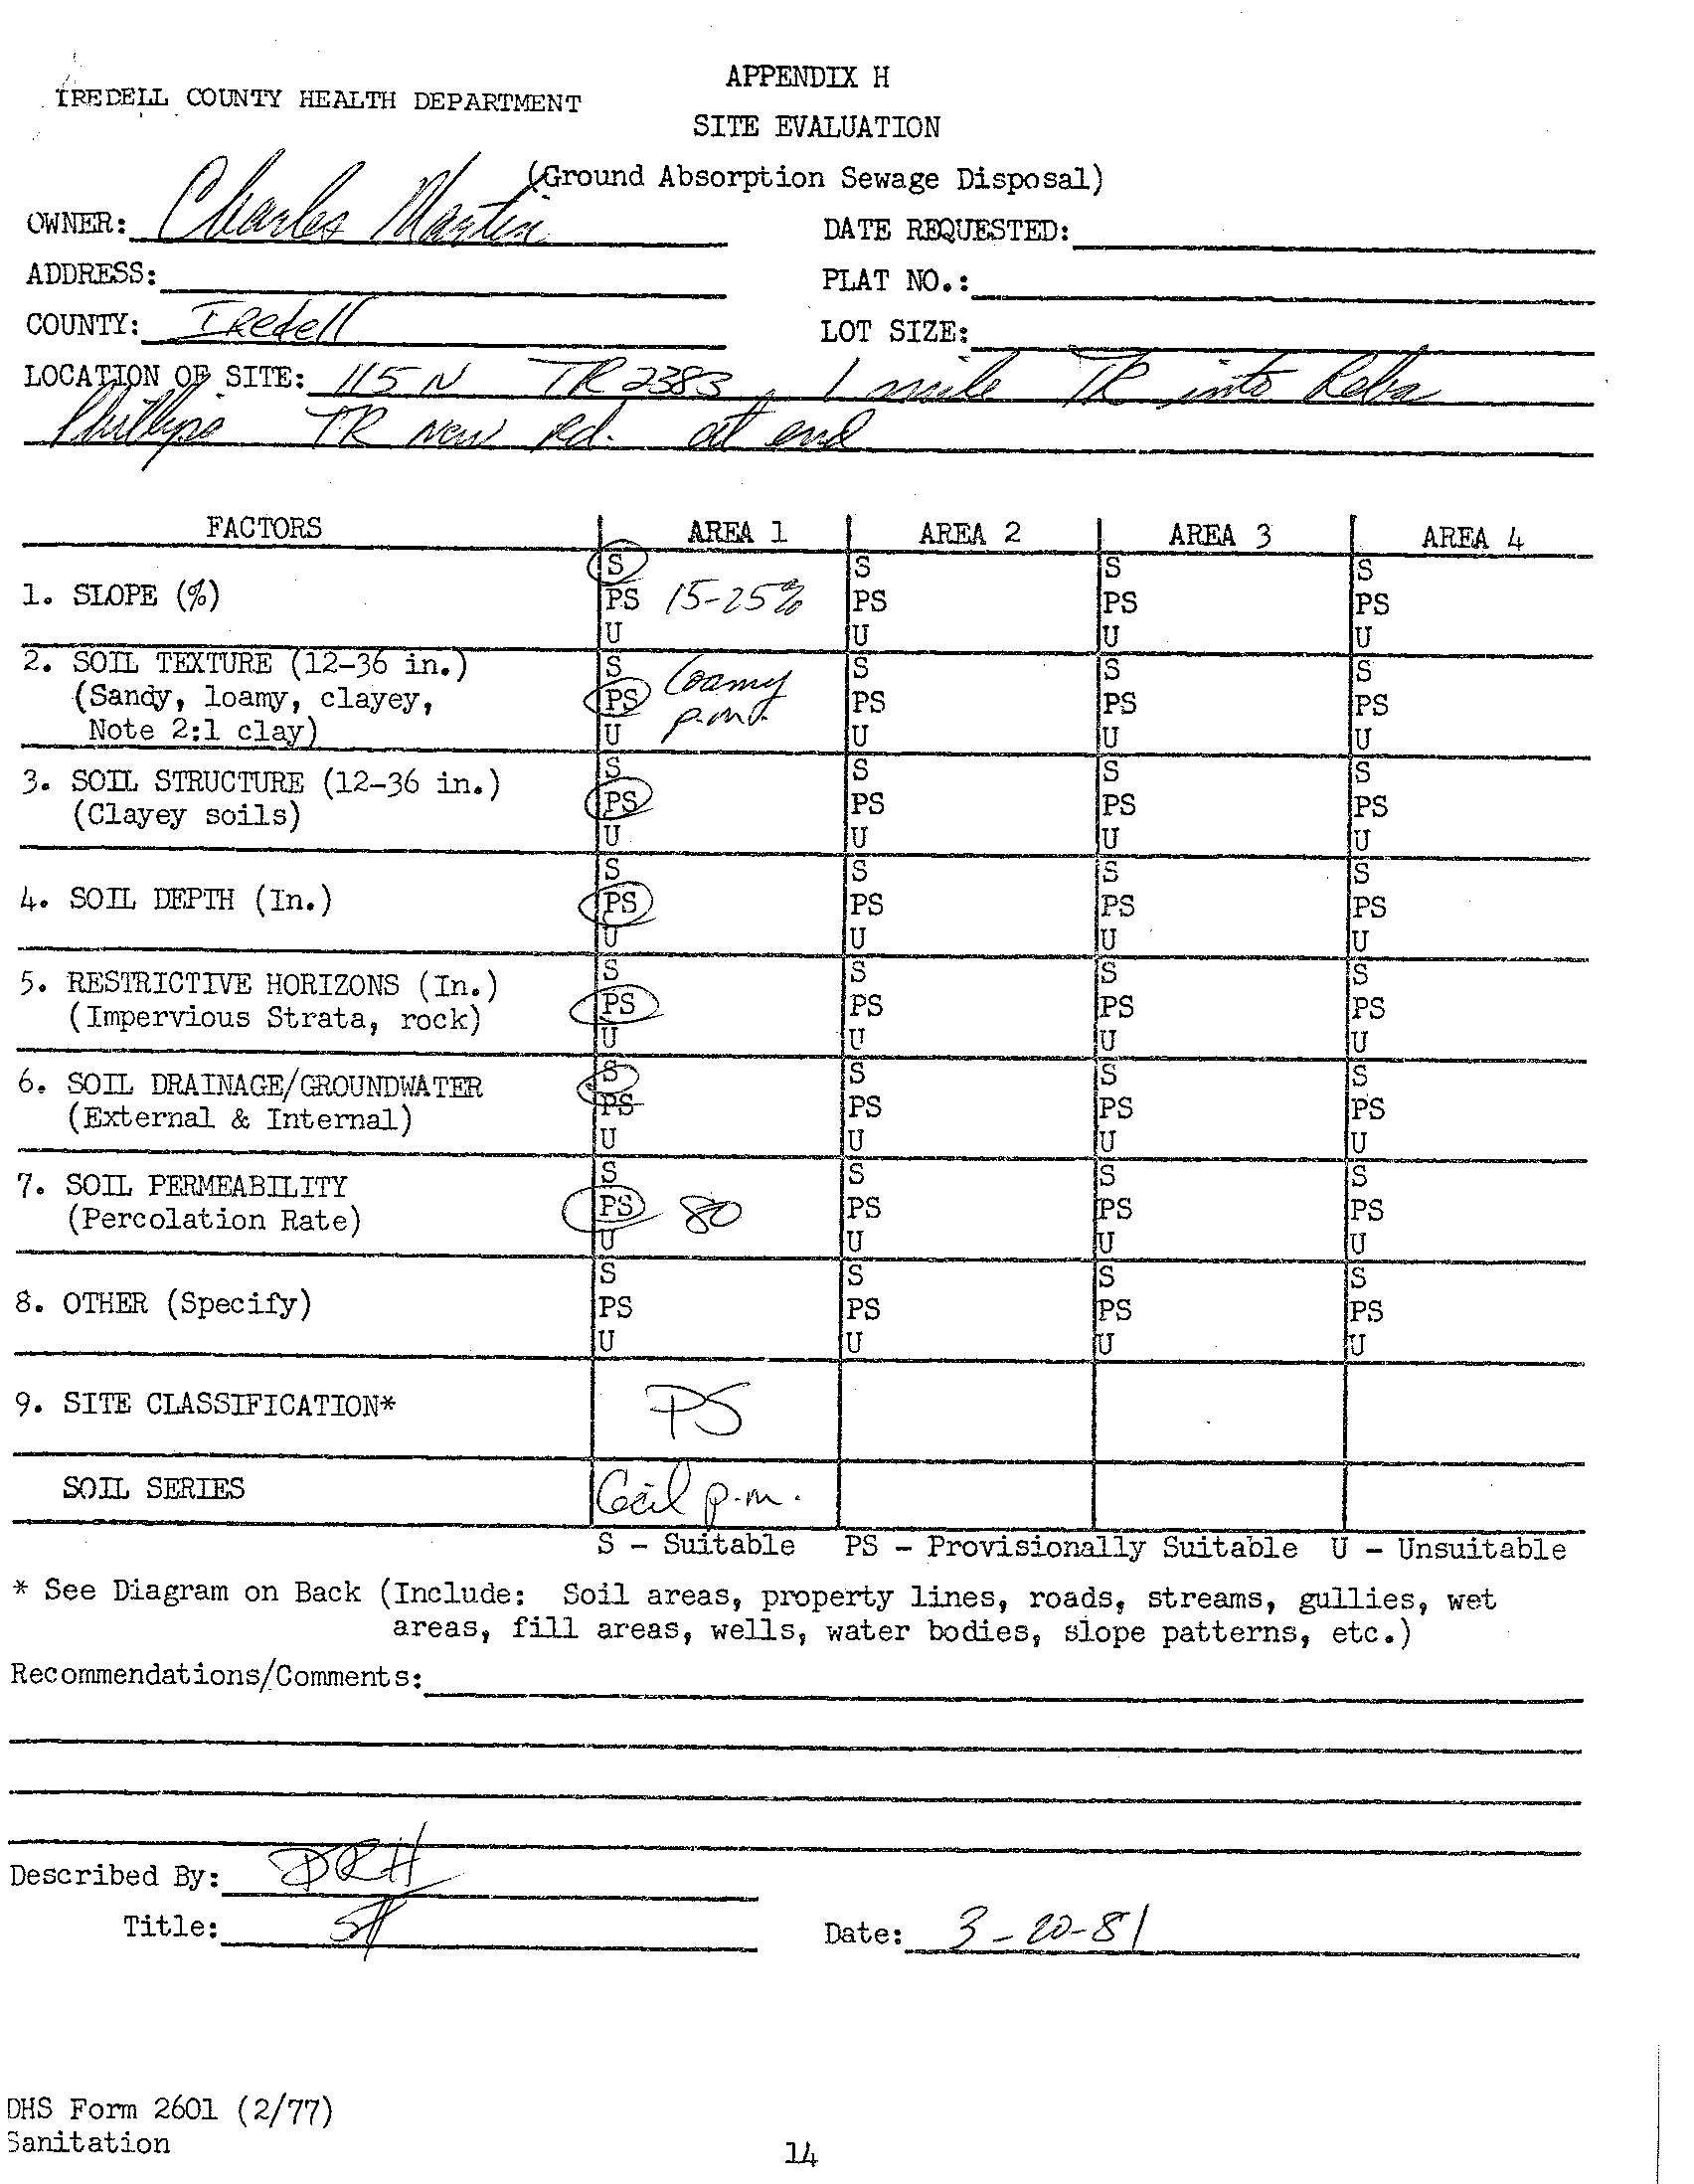 APPENDIX H
IREDELL COUNTY HEALTH DEPARTMENT
SITE EVALUATION
(Ground Absorption Sewage Disposal)
OWNER: Charles Martin DATE REQUESTED:
ADDRESS: PLAT NO.:
COUNTY: Iredell LOT SIZE:
LOCATION OF SITE: 115 N TR 2383, 1 mile TR into Reba
Phillips TR New Rd. at end
FACTORS AREA 1 AREA 2 AREA 3 AREA 4
S S S S
1. SLOPE (%) PS 15-25% PS PS PS
U U U U
2. SOIL TEXTURE (12-36 in.) S Loamy S S S
(Sandy, loamy, clayey, PS p.m. PS PS PS
Note 2:1 clay) U U U U
S S S S
3. SOIL STRUCTURE (12-36 in.) PS PS PS PS
(Clayey soils) U U U U
S S S S
4. SOIL DEPTH (In.) PS PS PS PS
U U U U
5. RESTRICTIVE HORIZONS (In.) S S S S
(Impervious Strata, rock) PS PS PS PS
U U U U
6. SOIL DRAINAGE/GROUNDWATER S S S S
(External & Internal) PS PS PS PS
U U U U
7. SOIL PERMEABILITY S S S S
(Percolation Rate) PS 80 PS PS PS
U U U U
S S S S
8. OTHER (Specify) PS PS PS PS
U U U U
9. SITE CLASSIFICATION* PS
SOIL SERIES Cecil p.m.
S - Suitable PS - Provisionally Suitable U - Unsuitable
* See Diagram on Back (Include: Soil areas, property lines, roads, streams, gullies, wet
areas, fill areas, wells, water bodies, slope patterns, etc.)
Recommendations/Comments:
Described By: DRH
Title:
Date: 3-20-81
DHS Form 2601 (2/77)
Sanitation
14